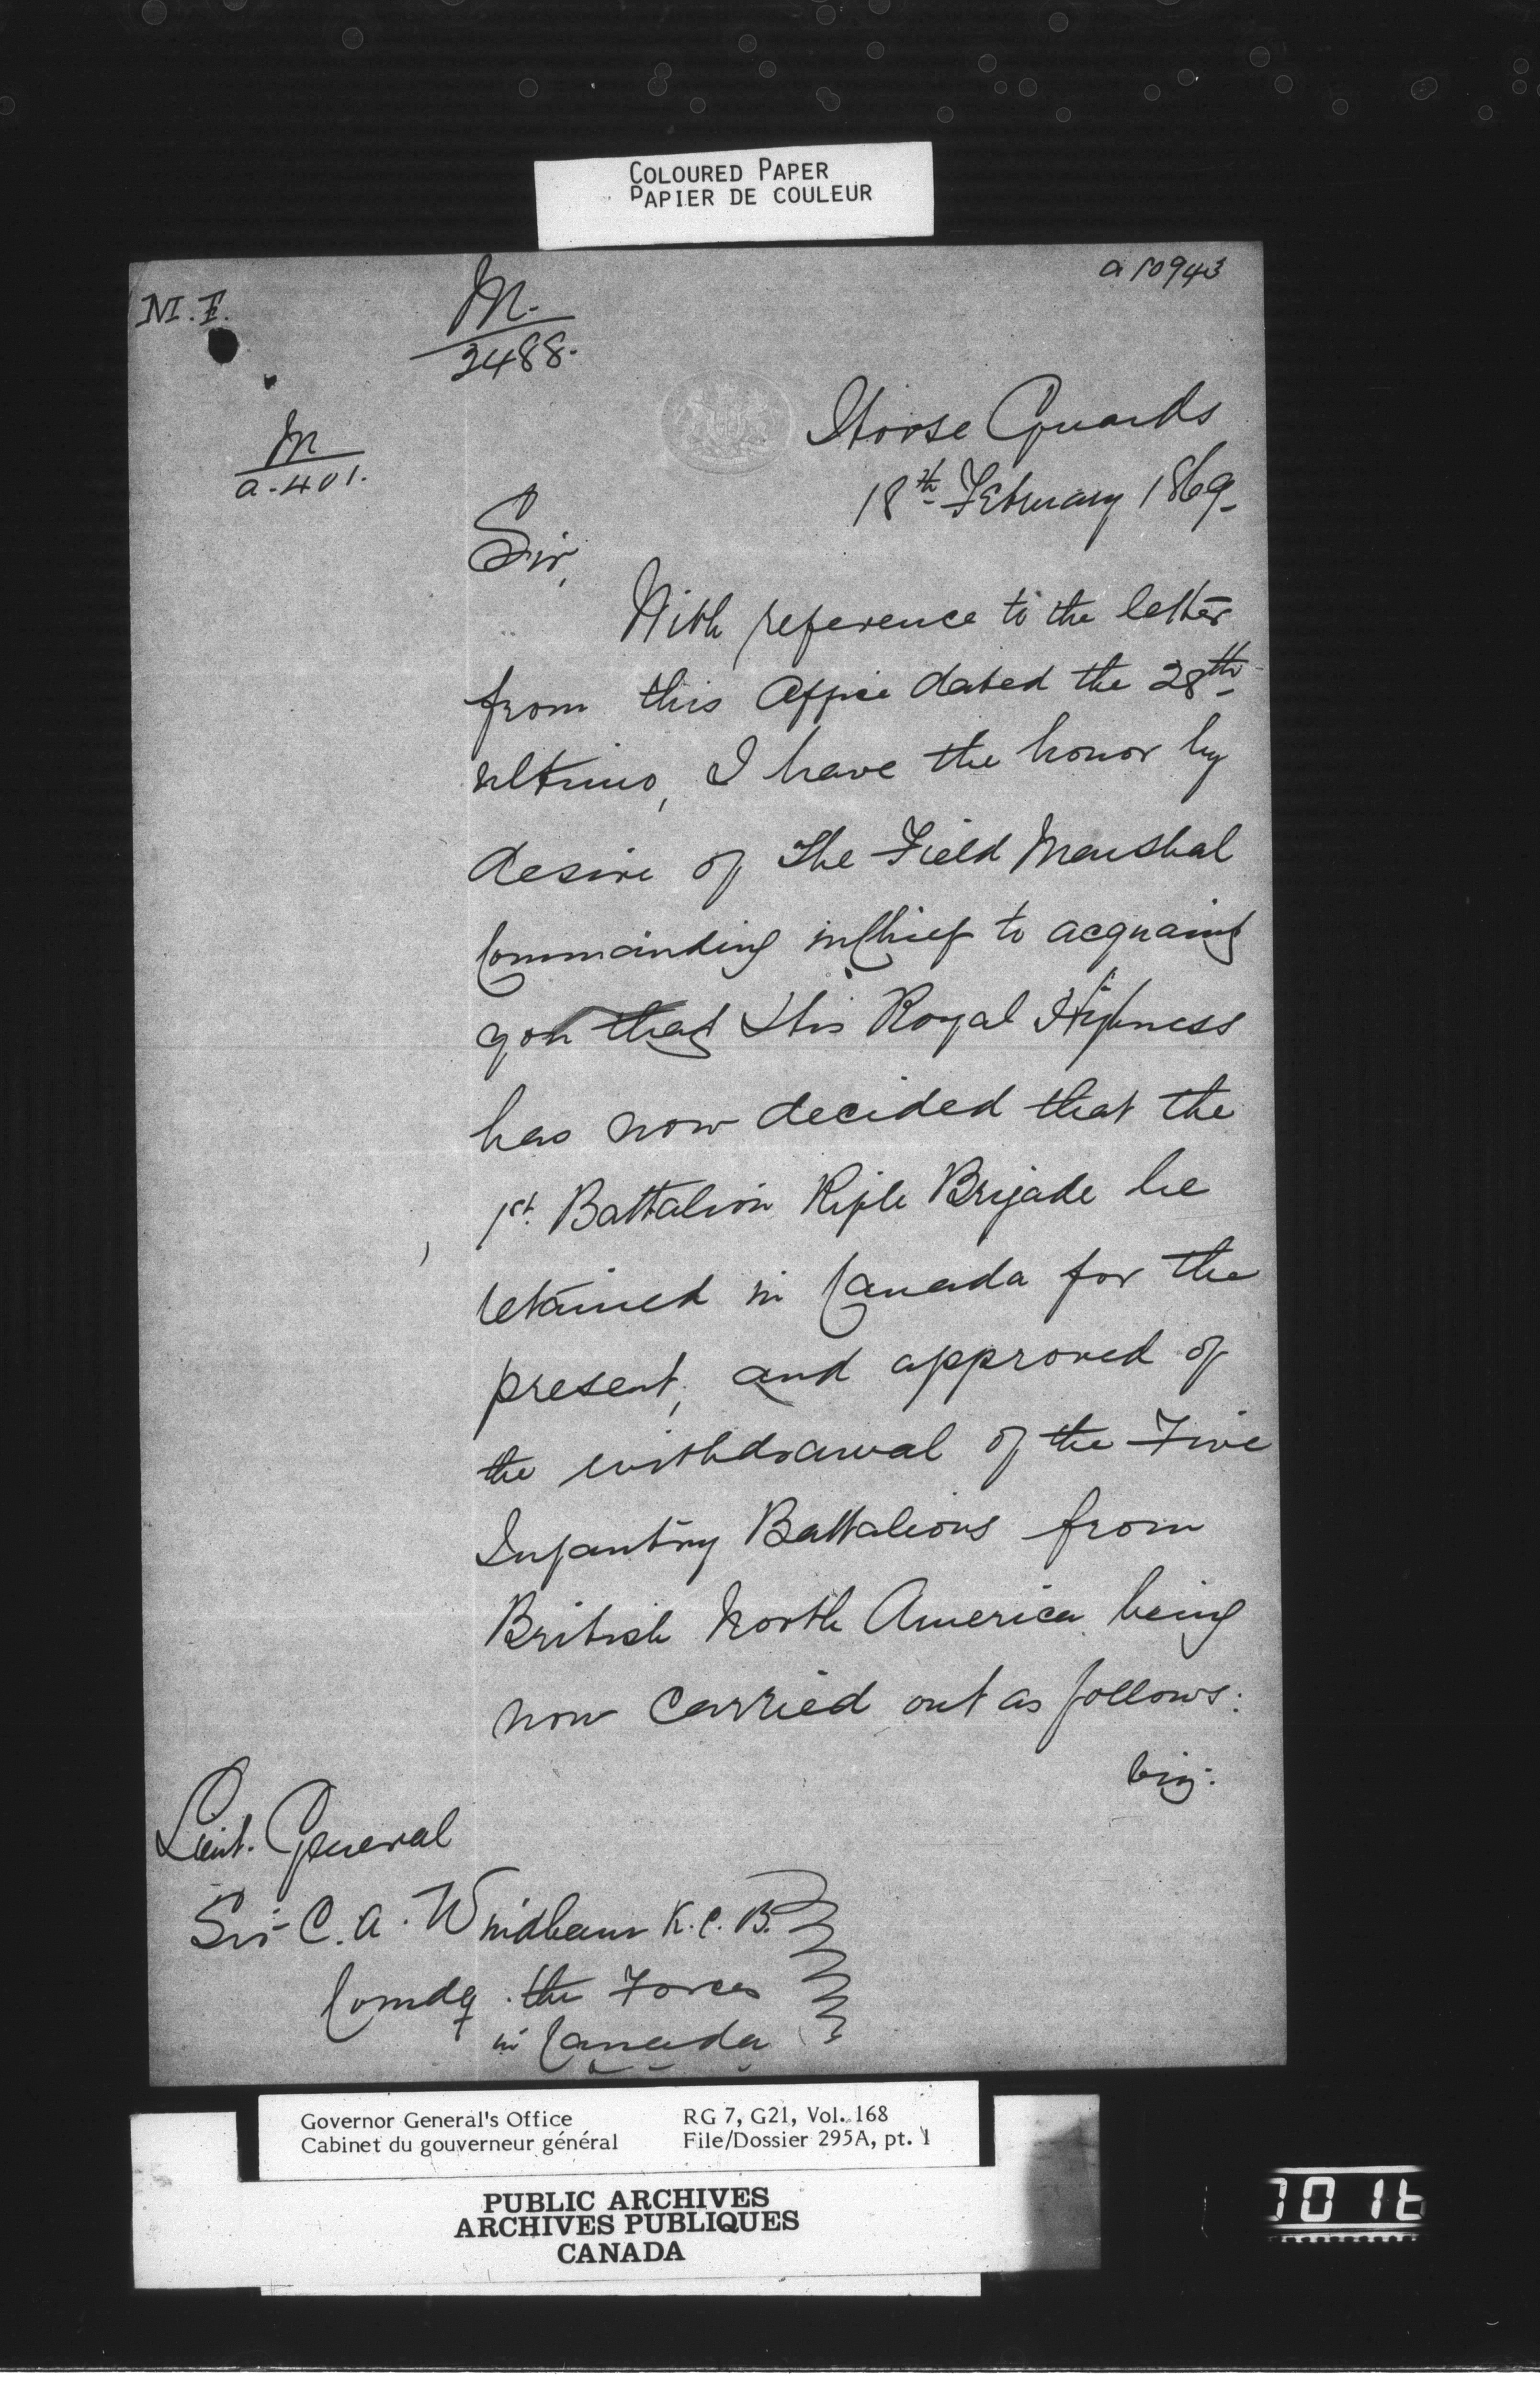 COLOURED PAPER
PAPIER DE COULEUR
a 10943
M.
2488.
M
a.401.
Horse Guards
18th February 1869
Sir,
With reference to the letter
from this Office dated the 28th
ultimo, I have the honor by
desire of The Field Marshal
Commanding in Chief to acquaint
you that His Royal Highness
has now decided that the
1st. Battalion Rifle Brigade be
retained in Canada for the
present, and approved of
the withdrawal of the Five
Infantry Battalions from
British North America being
now carried out as follows:
viz:
Lieut. General
Sir C. A. Windham K.C.B.
Comdg. the Forces
in Canada
Governor General's Office
Cabinet du gouverneur général
RG 7, G21, Vol. 168
File/Dossier 295A, pt. 1
PUBLIC ARCHIVES
ARCHIVES PUBLIQUES
CANADA